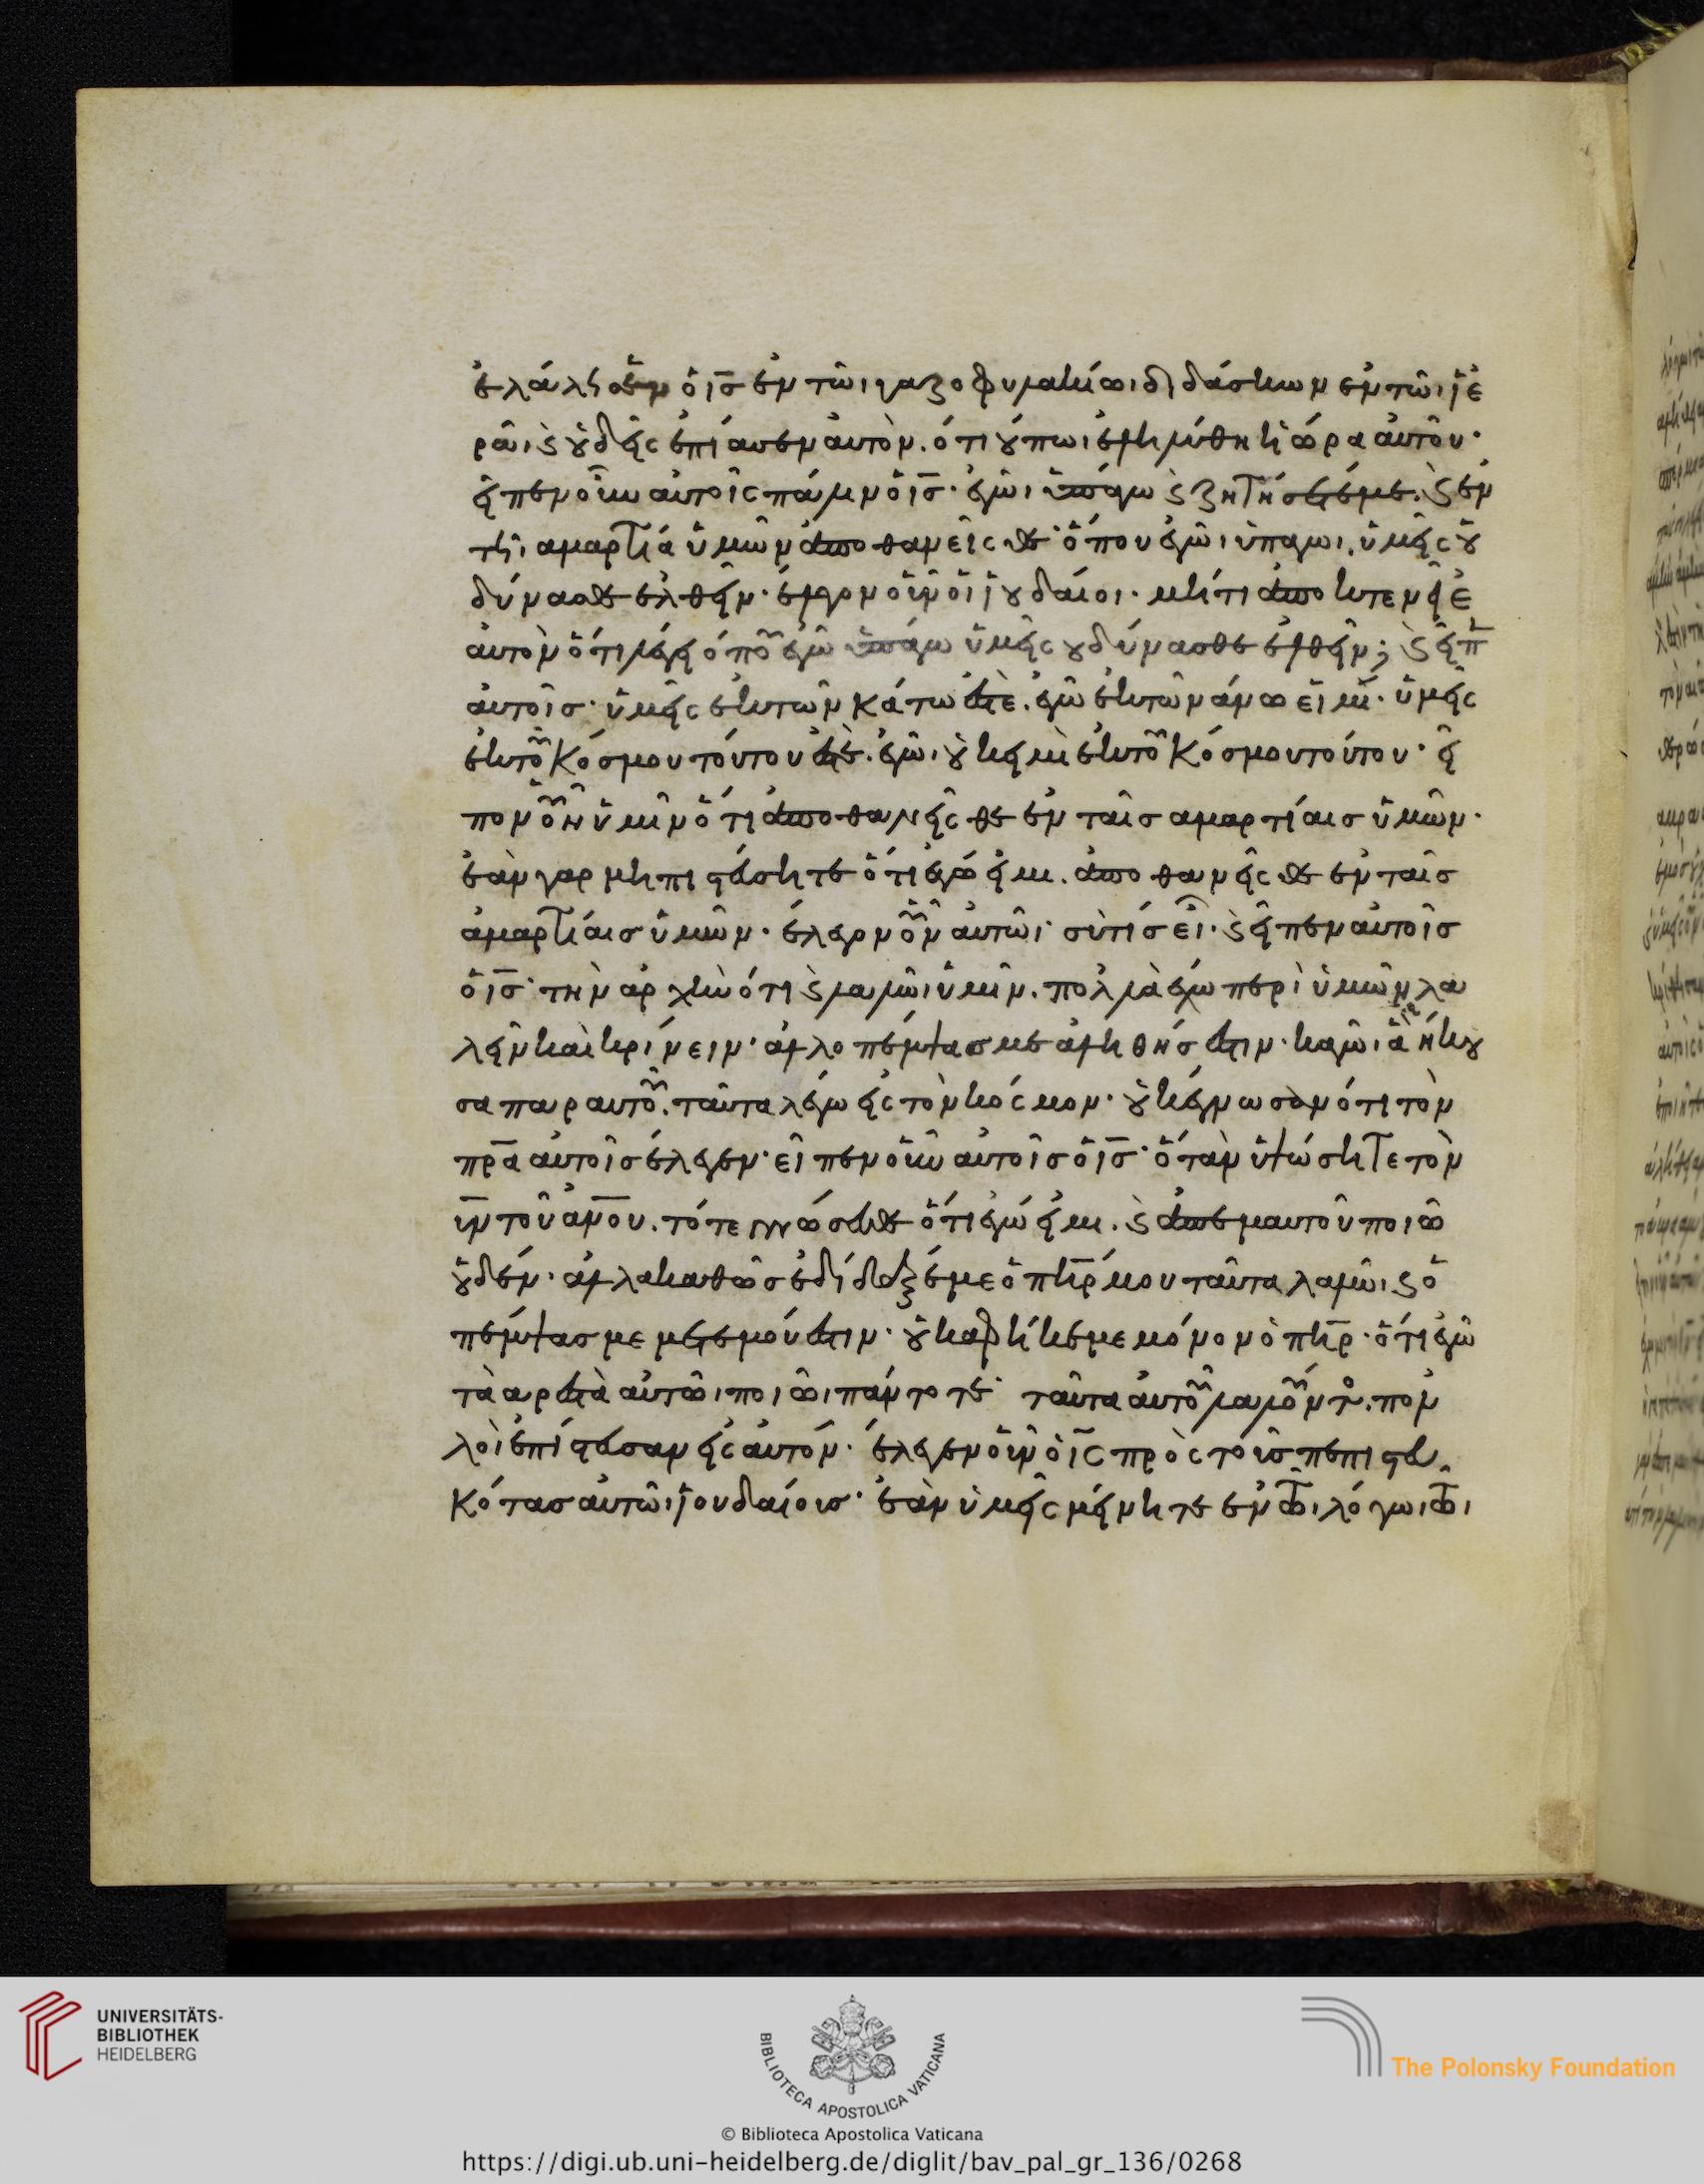 ἐλάλησεν ὁ ις ἐν τῶι γαζοφυλακίωι διδάσκων ἐν τῶι ἱε
ρῶι ϗ οὐδεὶς ἐπίασεν αὐτὸν. ὅτι οὔπωι ἐληλύθη ἡ ὥρα αὐτοῦ·
εἶπεν οὖν αὐτοῖς πάλιν ὁ ις· ἐγὼι ὑπάγω ϗ ζητήσετέ με. ϗ ἐν
τῆι αμαρτία ὑμῶν ἀποθανεῖσθε· ὅπου ἐγὼι ὑπάγωι. ὑμεῖς οὐ
δύνασθε ἐλθεῖν· ἔλεγον οὖν οἱ ἰουδαίοι· μήτι ἀποκτενεῖ ἑ
αὐτὸν ὅτι λέγει ὅπου ἐγὼ ὑπάγω ὑμεῖς οὐ δύνασθε ἐλθεῖν; ϗ εἶπ
αὐτοῖς· ὑμεῖς ἐκ τῶν κάτω ἐστὲ. ἐγὼ ἐκ τῶν άνω εἰμὶ· ὑμεῖς
ἐκ τοῦ κόσμου τούτου ἐστὲ. ἐγὼι οὐκ εἰμὶ ἐκ τοῦ κόσμου τούτου· εἶ
πον οὖν ὑμῖν ὅτι ἀποθανεῖσθε ἐν ταῖς αμαρτίαις ὑμῶν·
ἐὰν γαρ μὴ πιστεύσητε ὅτι ἐγώ εἰμι. ἀποθανεῖσθε ἐν ταῖς
ἁμαρτίαις ὑμῶν· ἔλεγον οὖν αὐτῶι· σὺ τίς εἶ· ϗ εἶπεν αὐτοῖς
ὁ ις· τὴν αρχὴν ὅτι ϗ λαλῶι ὑμῖν. πολλὰ ἔχω περὶ ὑμῶν λα
λεῖν καὶ κρίνειν· ἀλλ ο πέμψας με ἀληθής ἐστιν· κἀγὼι ἃ ήκου
σα παρ αυτοῦ. ταῦτα λέγω εἰς τὸν κόσμον· οὐκ έγνωσαν ότι τὸν
πρα αὐτοῖς έλεγεν· εἶπεν οὖν αὐτοῖς ὁ ις· ὅταν ὑψώσητε τὸν
υν τοῦ ανου. τότε γνώσεσθε ὅτι ἐγώ εἰμι. ϗ ἀπ εμαυτοῦ ποιῶ
οὐδέν· ἀλλα καθῶς ἐδίδαξέ με ὁ πηρ μου ταῦτα λαλῶι ϗ ὁ
πέμψας με μετ εμού ἐστιν· οὐκ αφήκε με μόνον ὁ πηρ· ὅτι ἐγὼ
τὰ αρεστὰ αὐτῶι ποιῶι πάντοτε· ταῦτα αὐτοῦ λαλοῦντος. πολ
λοὶ ἐπίστευσαν εἰς αὐτόν· έλεγεν οὖν ὁ ις πρὸς τοὺς πεπιστευ
κότας αὐτῶι ἰουδαίους· ἐὰν ὑμεῖς μείνητε ἐν τῶι λόγωι τῶι
UNIVERSITÄTS-
BIBLIOTHEK
HEIDELBERG
BIBLIOTECA APOSTOLICA VATICANA
The Polonsky Foundation
© Biblioteca Apostolica Vaticana
https://digi.ub.uni-heidelberg.de/diglit/bav_pal_gr_136/0268